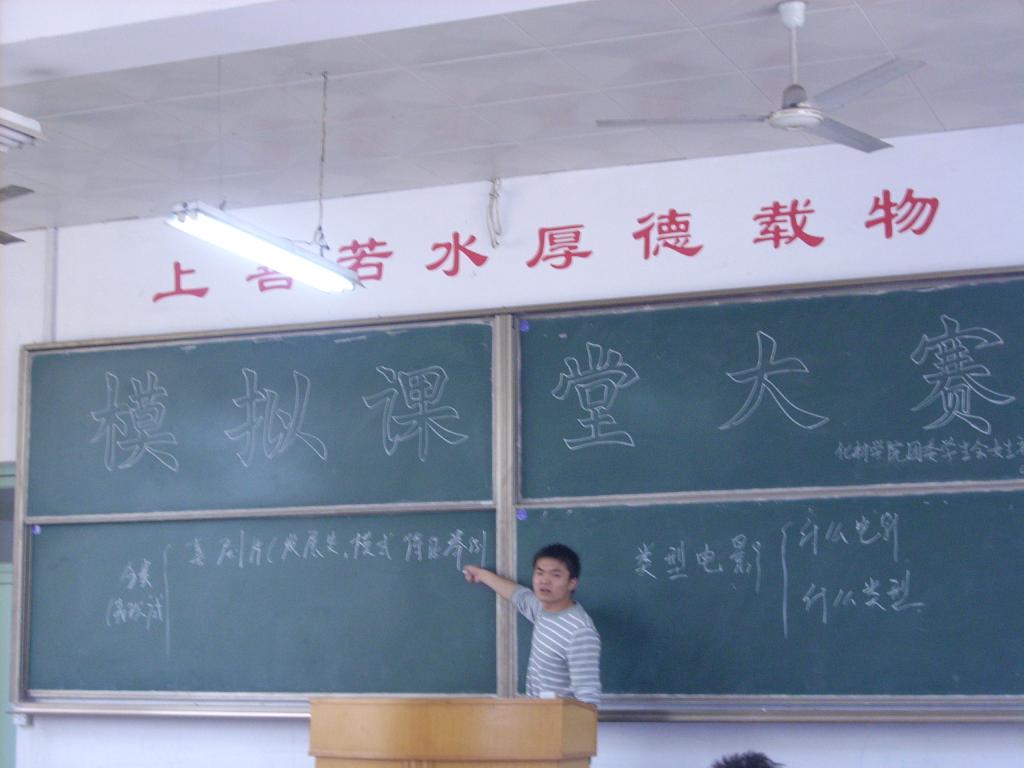 上善若水厚德载物
模拟课堂大赛
化材学院团委学生会女生部
喜剧片(发展史、模式
类型电影
什么电影
什么类型